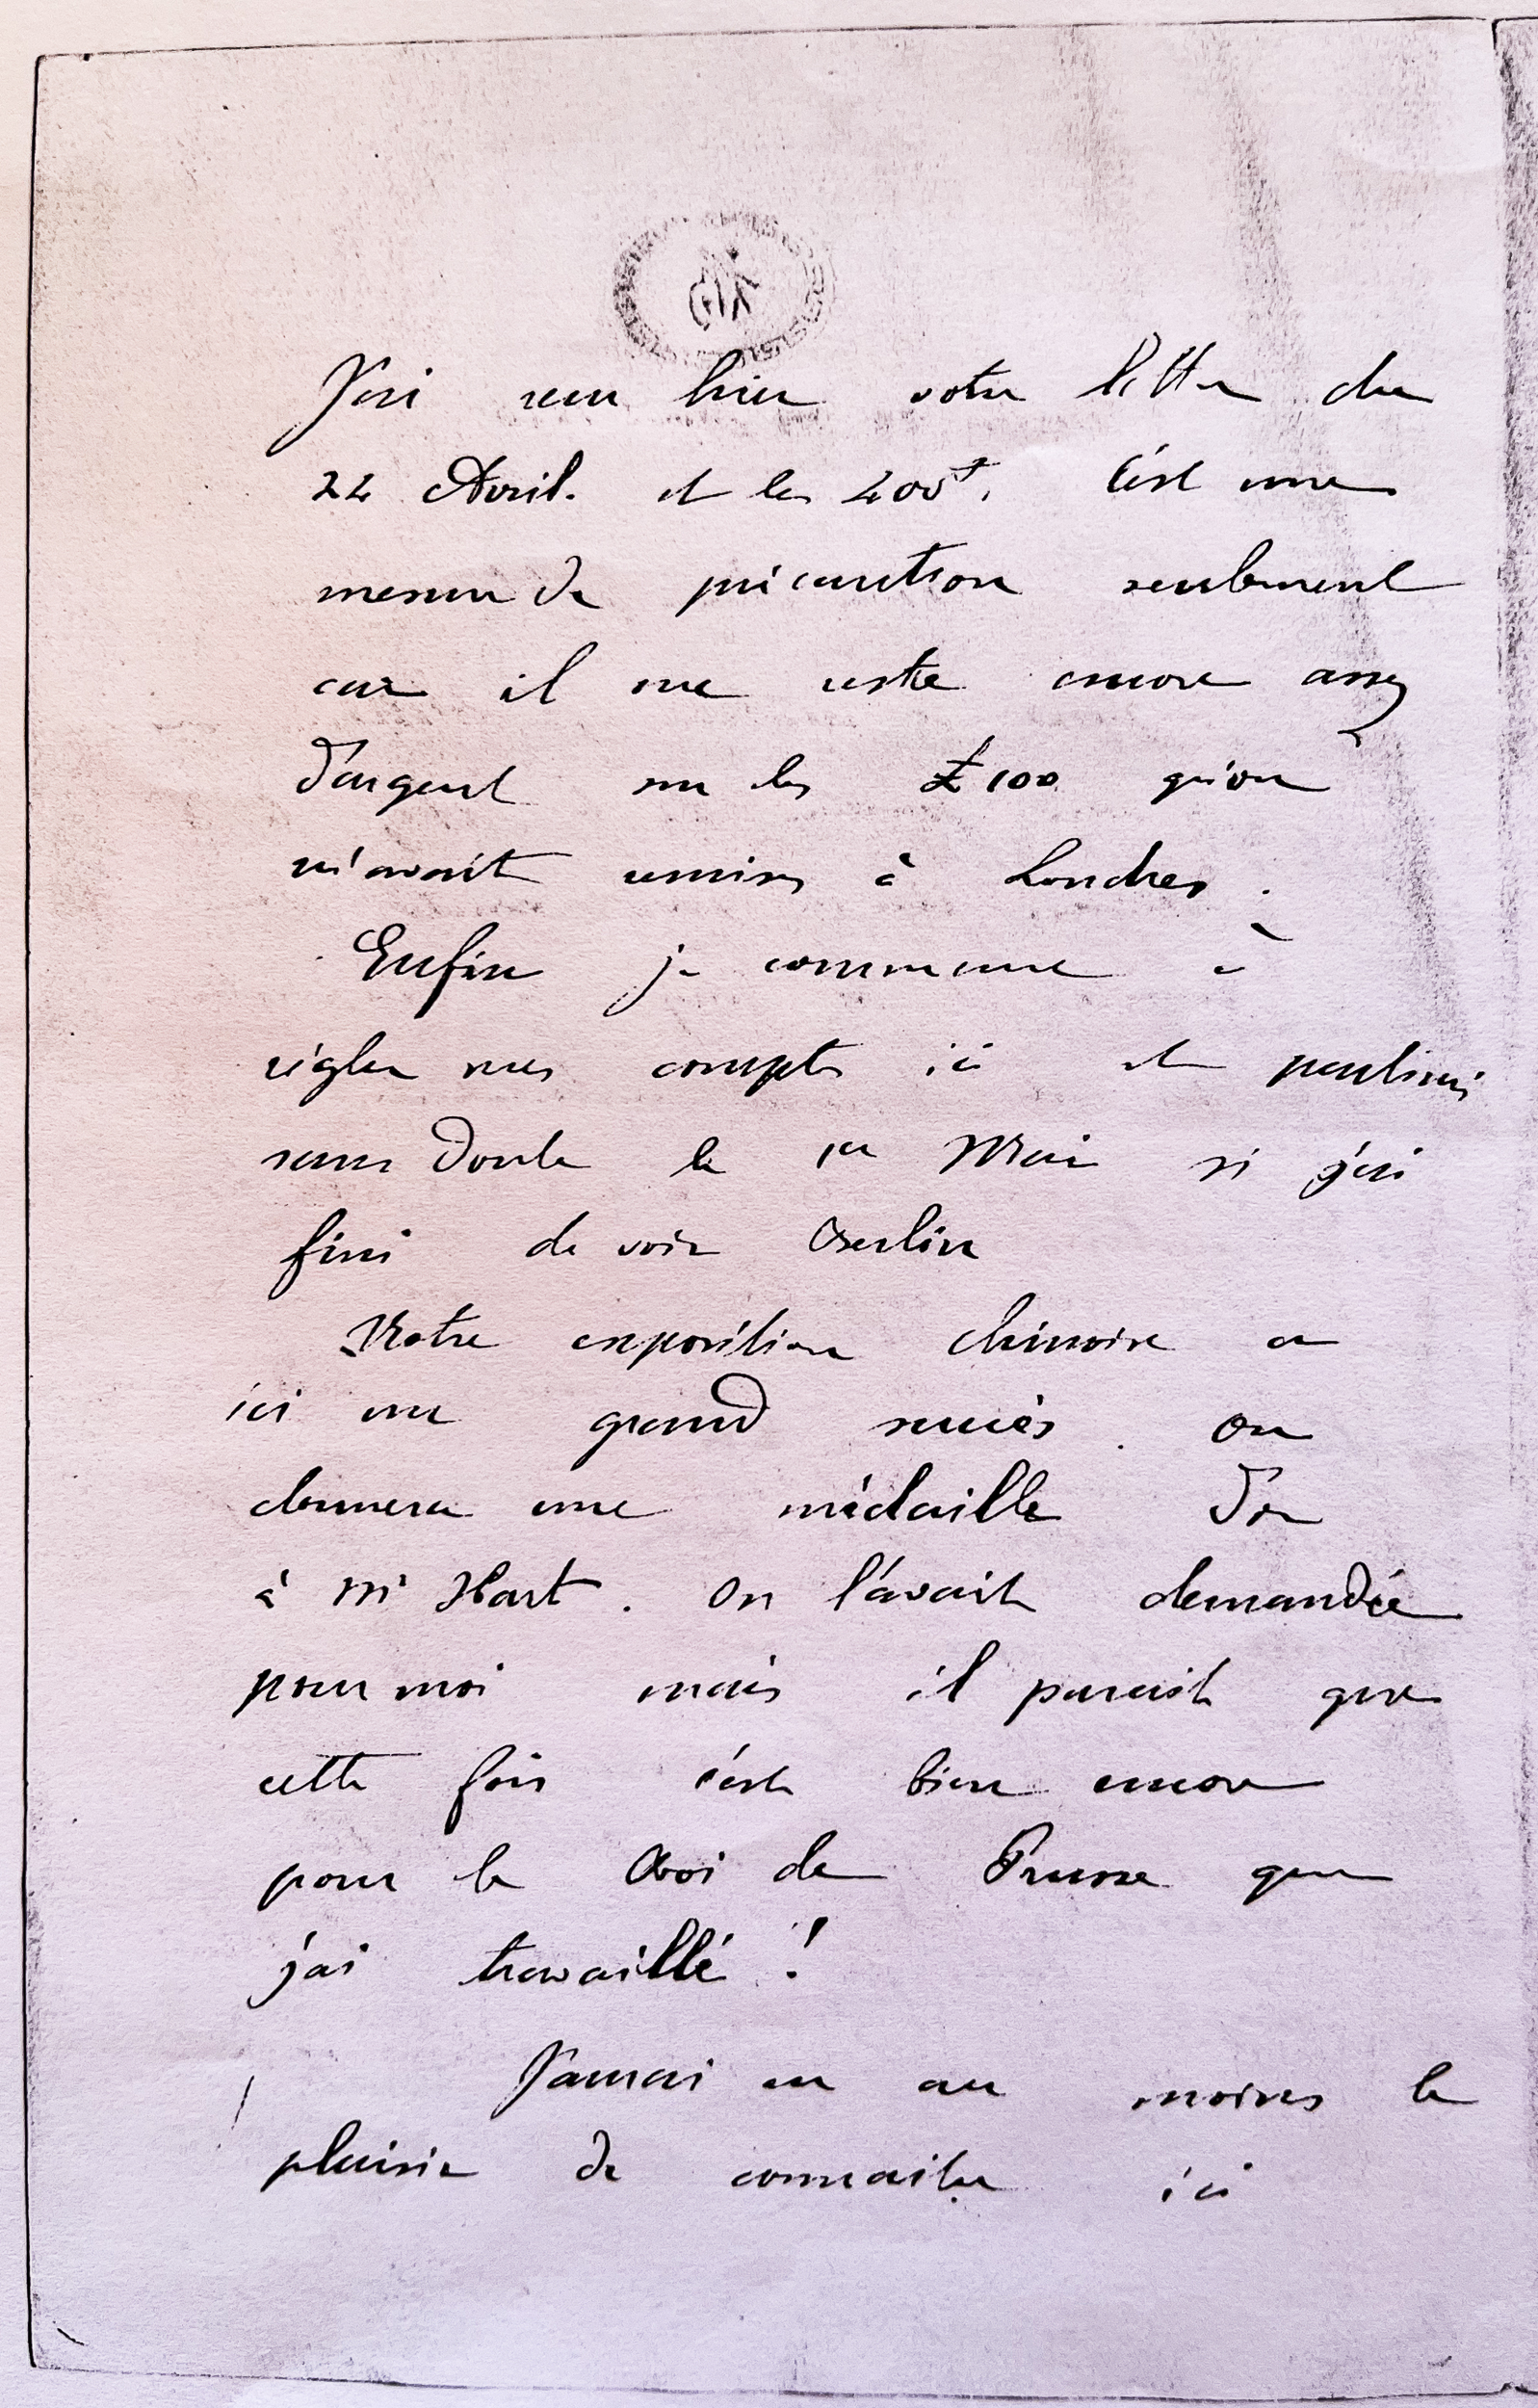 J'ai reçu hier votre lettre du
22 Avril. et les 200£. C'est une
mesure de précaution seulement
car il me reste encore assez
d'argent sur les £100 qu'on
m'avait remises à Londres.
Enfin je commence à
régler mes comptes ici et partirai
sans doute le 1er Mai si j'ai
fini de voir Berlin
Notre exposition chinoise a
ici un grand succès. On
donnera une médaille d'or
à Mr Hart. On l'avait demandée
pour moi mais il parait que
cette fois c'est bien encore
pour le Roi de Prusse que
j'ai travaillé !
J'aurai eu au moins le
plaisir de connaitre ici